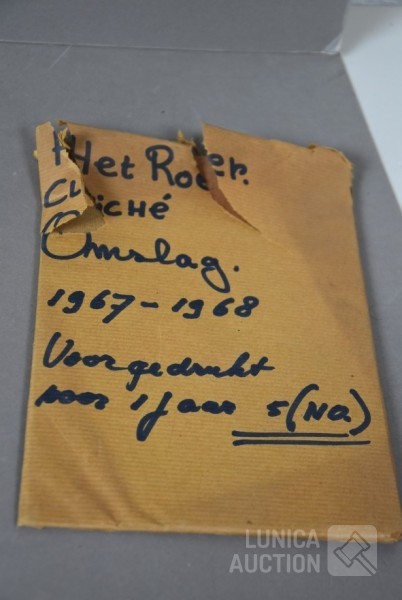 Het Roer.
Cliché
Omslag.
1967-1968
Voorgedrukt
voor 1 jaar 5 (No.)
LUNICA
AUCTION